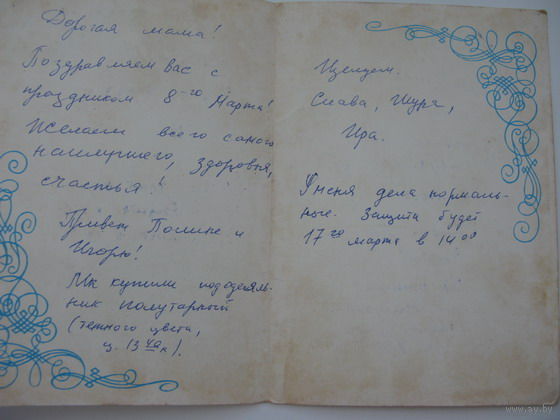 Дорогая мама!
Поздравляем Вас с
праздником 8-го Марта!
Желаем всего самого
наилучшего, здоровья,
счастья!
Привет Полине и
Игорю!
Мы купили пододеяль-
ник полутарный
(темного цвета,
ц. 13

Целуем.
Слава, Шура,
Ира.
У меня дела нормаль-
ные. Защита будет
17го марта в 14 00
www.ay.by